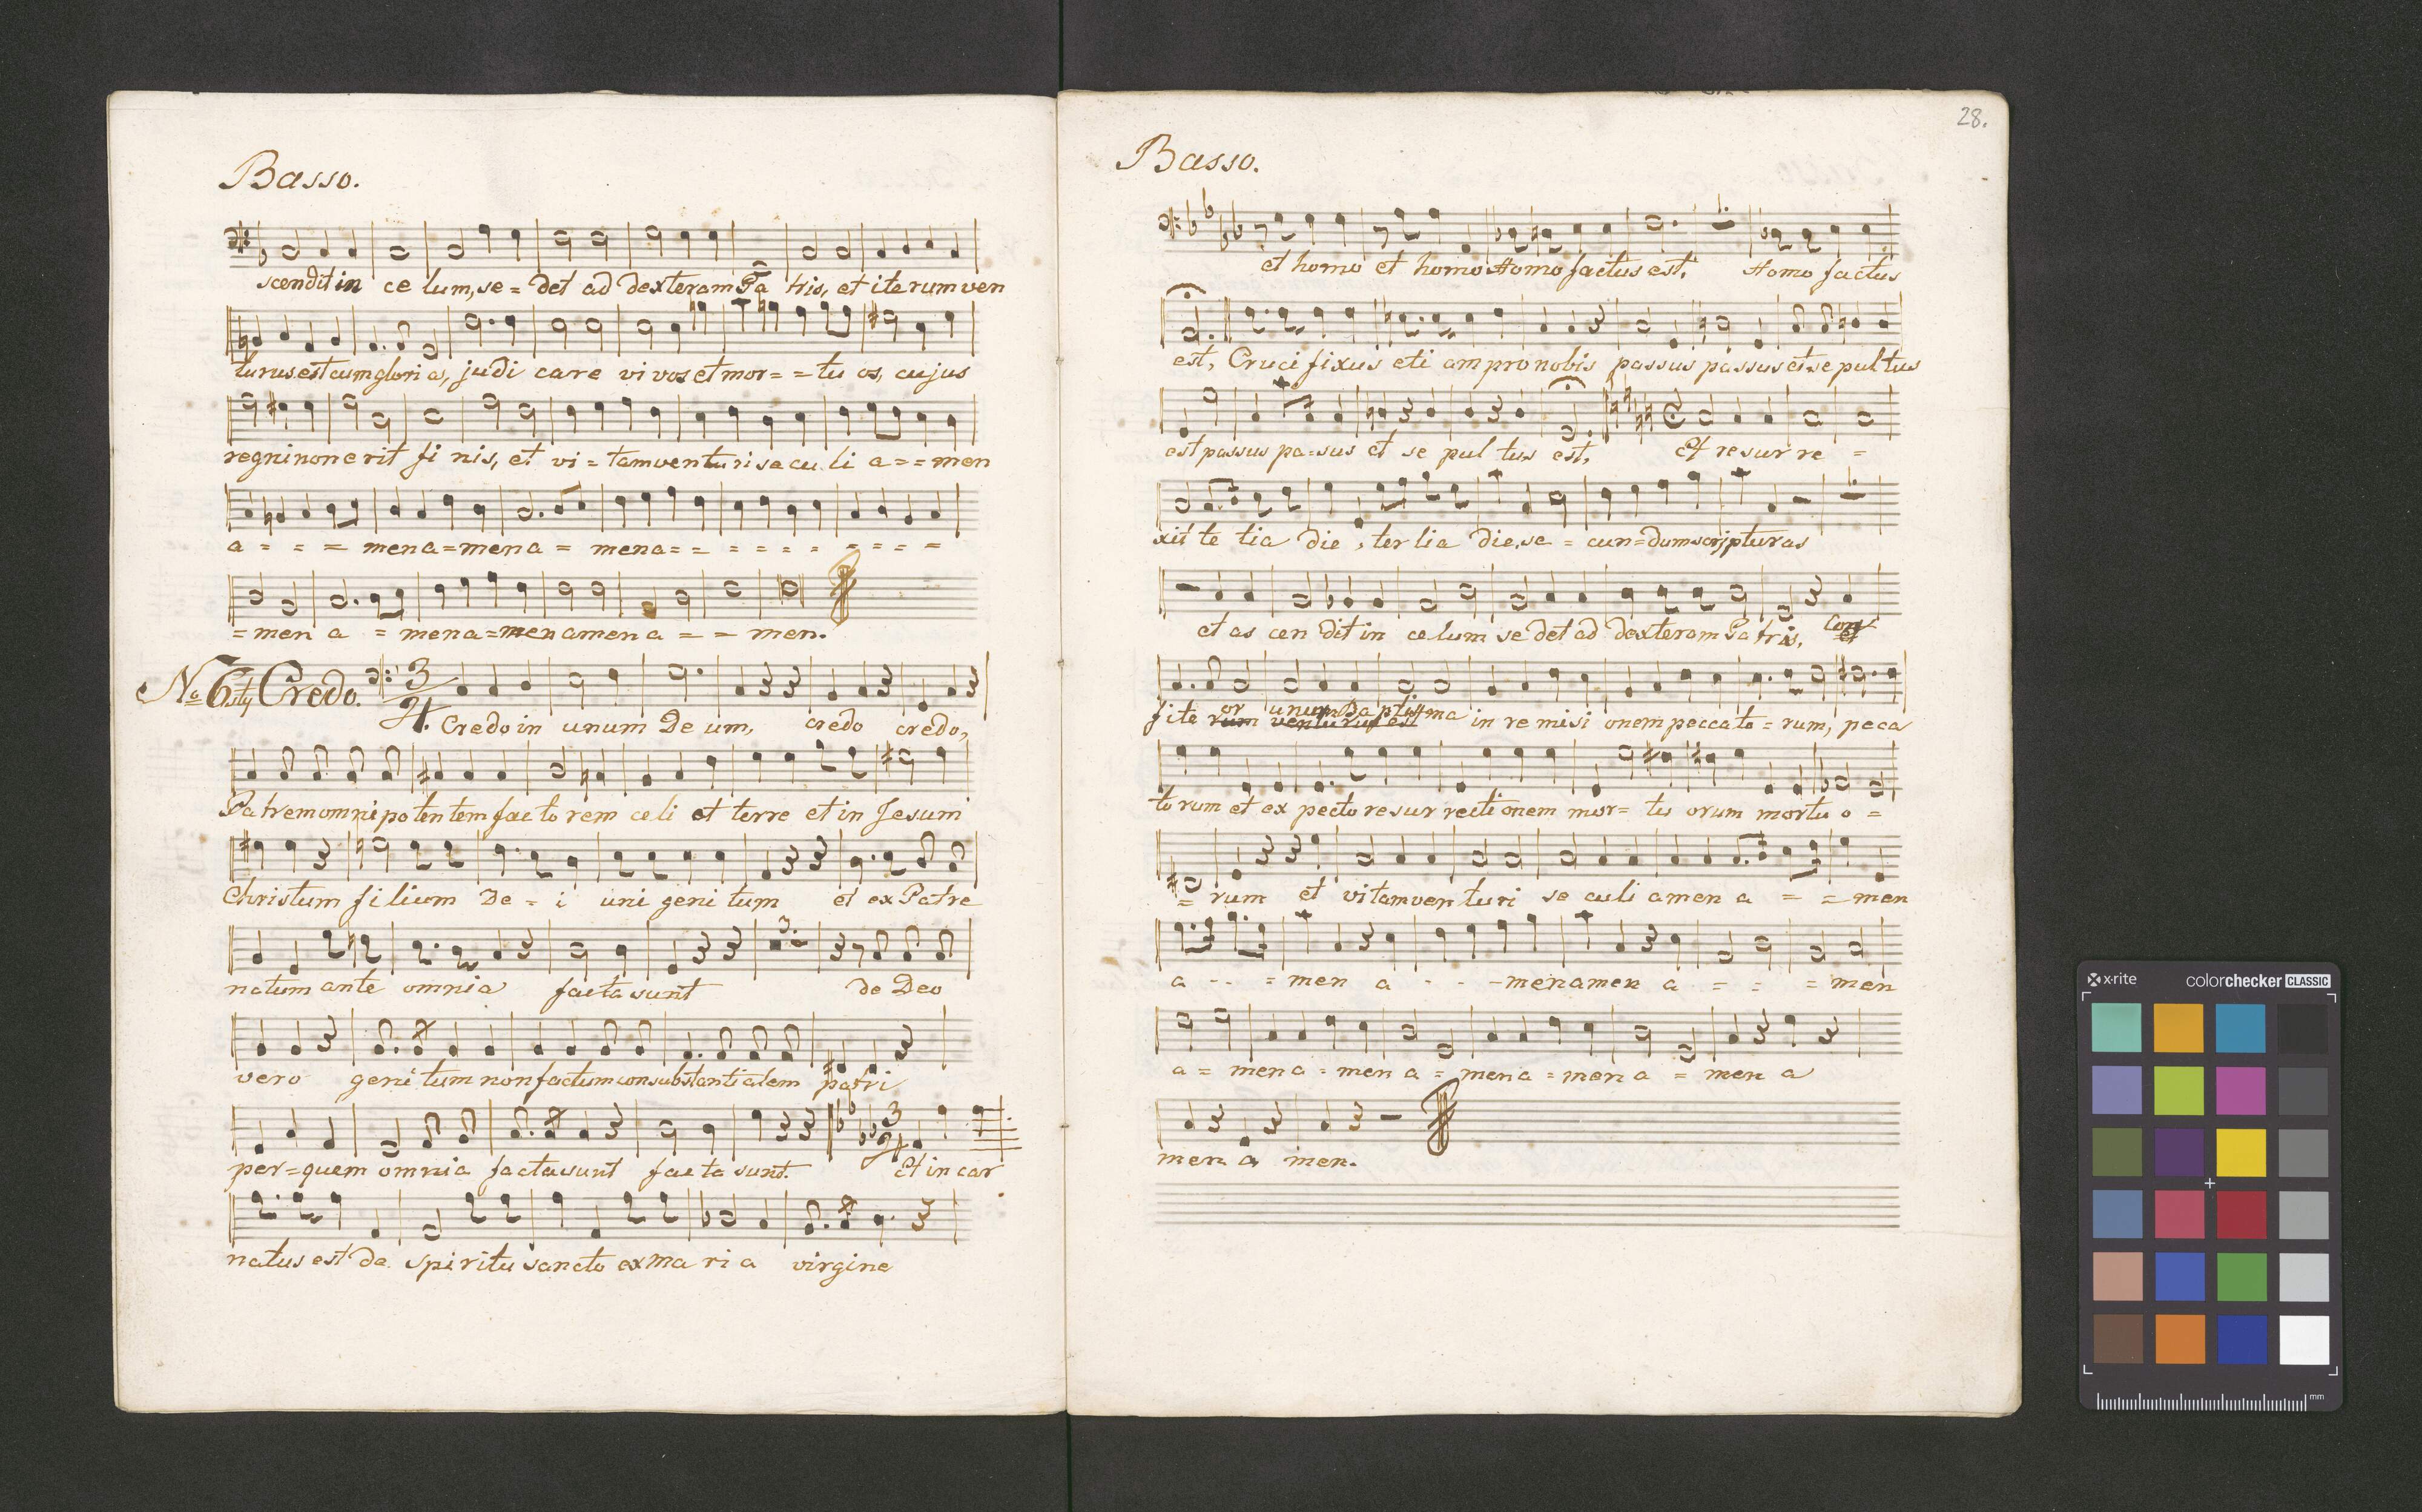 Basso.
scendit in ce lum, se = det ad dexteram Pa tris, et iterum ven
turus est cum glori a, judi care vi vos et mor = = tu os, cujus
regni non erit fi nis, et vi = tam venturi secu li a = = men
a = = = men a = men a = men a = = = = = = = = = =
= men a = men a = men amen a = = men.
No 6sty Credo. 3/4. Credo in unum De um, credo credo,
Patrem omnipotentem factorem celi et terre et in Jesum
Christum filium De = i uni geni tum et ex Patre
natum ante omnia facta sunt 3. de Deo
vero geni tum non factum consubstantialem patri
per = quem omnia facta sunt facta sunt. 3/4 Et in car
natus est de spiritu sancto ex Maria virgine
28.
Basso.
et homo et homo Homo factus est, 1. Homo factus
est, Cruci fixus eti am pro nobis passus passus et se pul tus
est passus pa = sus et se pul tus est, Et resur re =
xit te tia die, tertia die, se = cun = dum scripturas 1.
et as cen dit in celum se det ad dexteram Pa tris, Con
fite or unum Baptisma in re misi onem peccato = rum, peca
to rum et ex pecto resur rectionem mor = tu orum mortu o =
= rum et vitam ven turi se culi amen a = = men
a - - = men a - - - men amen a = = = men
a = men a = men a = men a = men a = men a
men a, men.